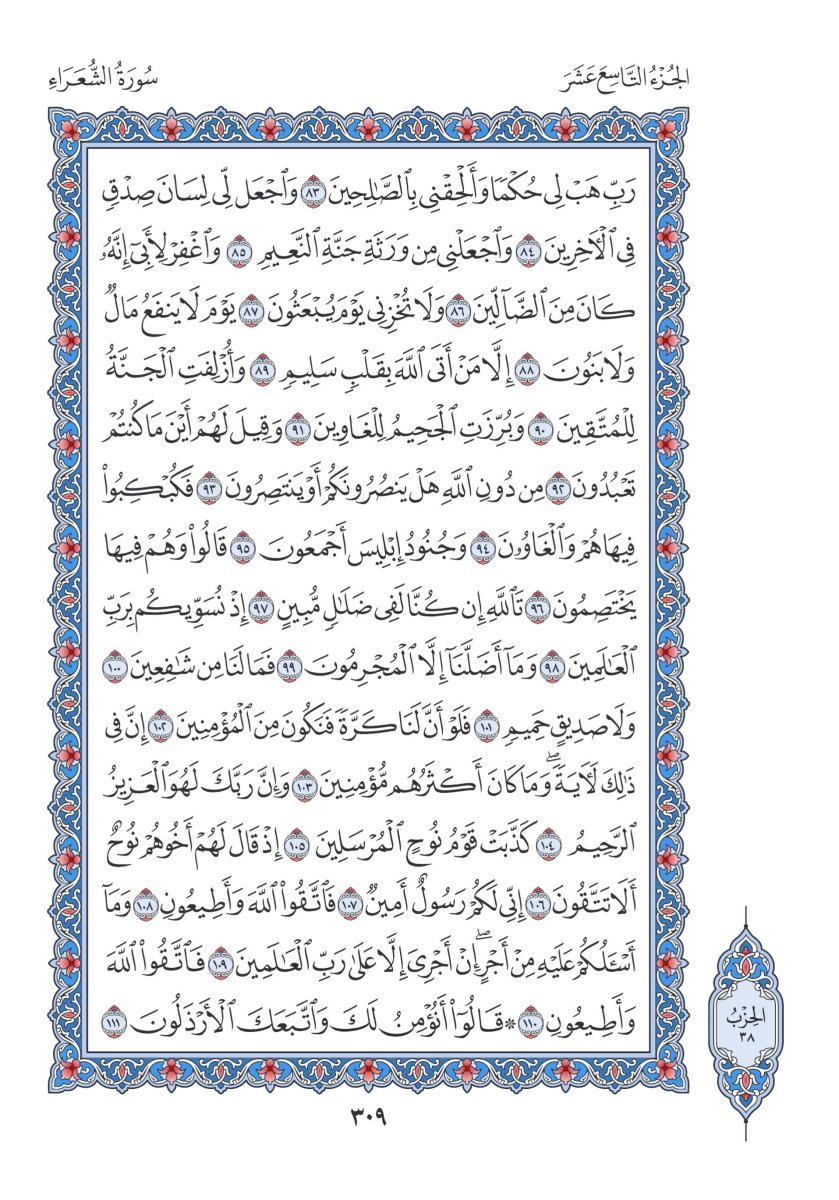 الجُزْءُ التَّاسِعَ عَشَرَ
سُورَةُ الشُّعَرَاءِ
رَبِّ هَبْ لِي حُكْمًا وَأَلْحِقْنِي بِٱلصَّٰلِحِينَ ٨٣ وَٱجْعَل لِّي لِسَانَ صِدْقٍ
فِي ٱلْأٓخِرِينَ ٨٤ وَٱجْعَلْنِي مِن وَرَثَةِ جَنَّةِ ٱلنَّعِيمِ ٨٥ وَٱغْفِرْ لِأَبِيٓ إِنَّهُۥ
كَانَ مِنَ ٱلضَّآلِّينَ ٨٦ وَلَا تُخْزِنِي يَوْمَ يُبْعَثُونَ ٨٧ يَوْمَ لَا يَنفَعُ مَالٌ
وَلَا بَنُونَ ٨٨ إِلَّا مَنْ أَتَى ٱللَّهَ بِقَلْبٍ سَلِيمٍ ٨٩ وَأُزْلِفَتِ ٱلْجَنَّةُ
لِلْمُتَّقِينَ ٩٠ وَبُرِّزَتِ ٱلْجَحِيمُ لِلْغَاوِينَ ٩١ وَقِيلَ لَهُمْ أَيْنَ مَا كُنتُمْ
تَعْبُدُونَ ٩٢ مِن دُونِ ٱللَّهِ هَلْ يَنصُرُونَكُمْ أَوْ يَنتَصِرُونَ ٩٣ فَكُبْكِبُوا۟
فِيهَا هُمْ وَٱلْغَاوُۥنَ ٩٤ وَجُنُودُ إِبْلِيسَ أَجْمَعُونَ ٩٥ قَالُوا۟ وَهُمْ فِيهَا
يَخْتَصِمُونَ ٩٦ تَٱللَّهِ إِن كُنَّا لَفِي ضَلَٰلٍ مُّبِينٍ ٩٧ إِذْ نُسَوِّيكُم بِرَبِّ
ٱلْعَٰلَمِينَ ٩٨ وَمَآ أَضَلَّنَآ إِلَّا ٱلْمُجْرِمُونَ ٩٩ فَمَا لَنَا مِن شَٰفِعِينَ ١٠٠
وَلَا صَدِيقٍ حَمِيمٍ ١٠١ فَلَوْ أَنَّ لَنَا كَرَّةً فَنَكُونَ مِنَ ٱلْمُؤْمِنِينَ ١٠٢ إِنَّ فِي
ذَٰلِكَ لَأٓيَةً ۖ وَمَا كَانَ أَكْثَرُهُم مُّؤْمِنِينَ ١٠٣ وَإِنَّ رَبَّكَ لَهُوَ ٱلْعَزِيزُ
ٱلرَّحِيمُ ١٠٤ كَذَّبَتْ قَوْمُ نُوحٍ ٱلْمُرْسَلِينَ ١٠٥ إِذْ قَالَ لَهُمْ أَخُوهُمْ نُوحٌ
أَلَا تَتَّقُونَ ١٠٦ إِنِّي لَكُمْ رَسُولٌ أَمِينٌ ١٠٧ فَٱتَّقُوا۟ ٱللَّهَ وَأَطِيعُونِ ١٠٨ وَمَآ
أَسْـَٔلُكُمْ عَلَيْهِ مِنْ أَجْرٍ ۖ إِنْ أَجْرِيَ إِلَّا عَلَىٰ رَبِّ ٱلْعَٰلَمِينَ ١٠٩ فَٱتَّقُوا۟ ٱللَّهَ
وَأَطِيعُونِ ١١٠ * قَالُوٓا۟ أَنُؤْمِنُ لَكَ وَٱتَّبَعَكَ ٱلْأَرْذَلُونَ ١١١
الحِزْبُ
٣٨
٣٠٩